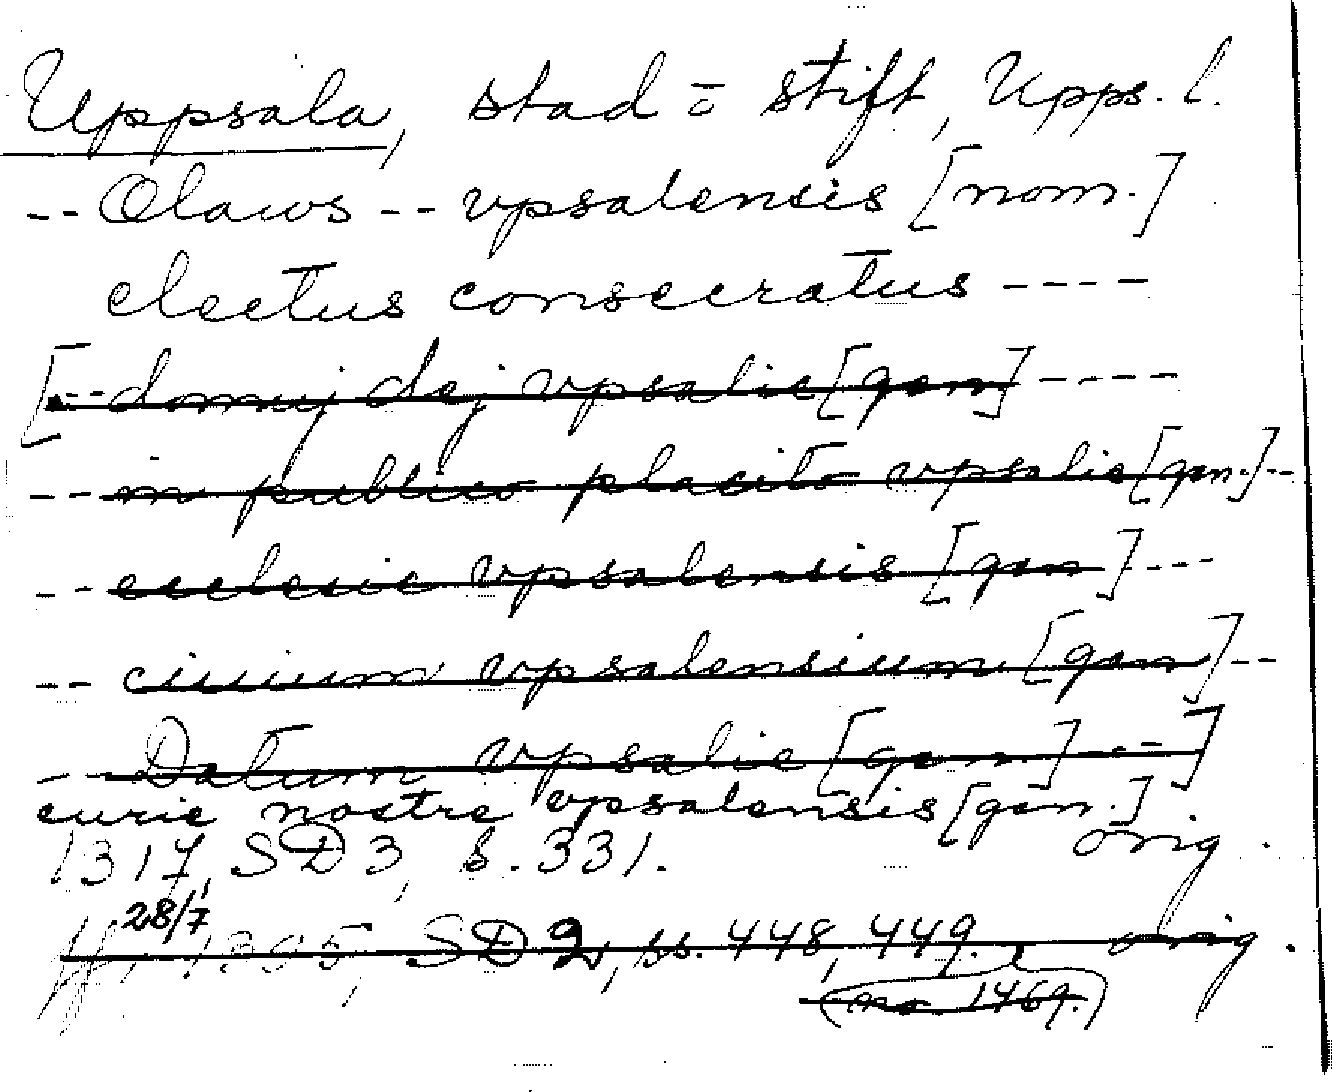 Uppsala, stad o stift, Upps. l.
-- Olaws -- vpsalensis [nom.]
electus consecratus ----
[-- domuj dej vpsalie [gen] -----
-- in publico placito vpsalie [gen.] --
-- ecclesie vpsalensis [gen] ---
-- ciuium vpsalensium [gen] --
-- Datum vpsalie [gen.] --- ]
curie nostre vpsalensis [gen.]
1317, SD 3, s. 331. orig.
28/7
1305, SD 2, s. 448, 449. orig.
(no 1469.)